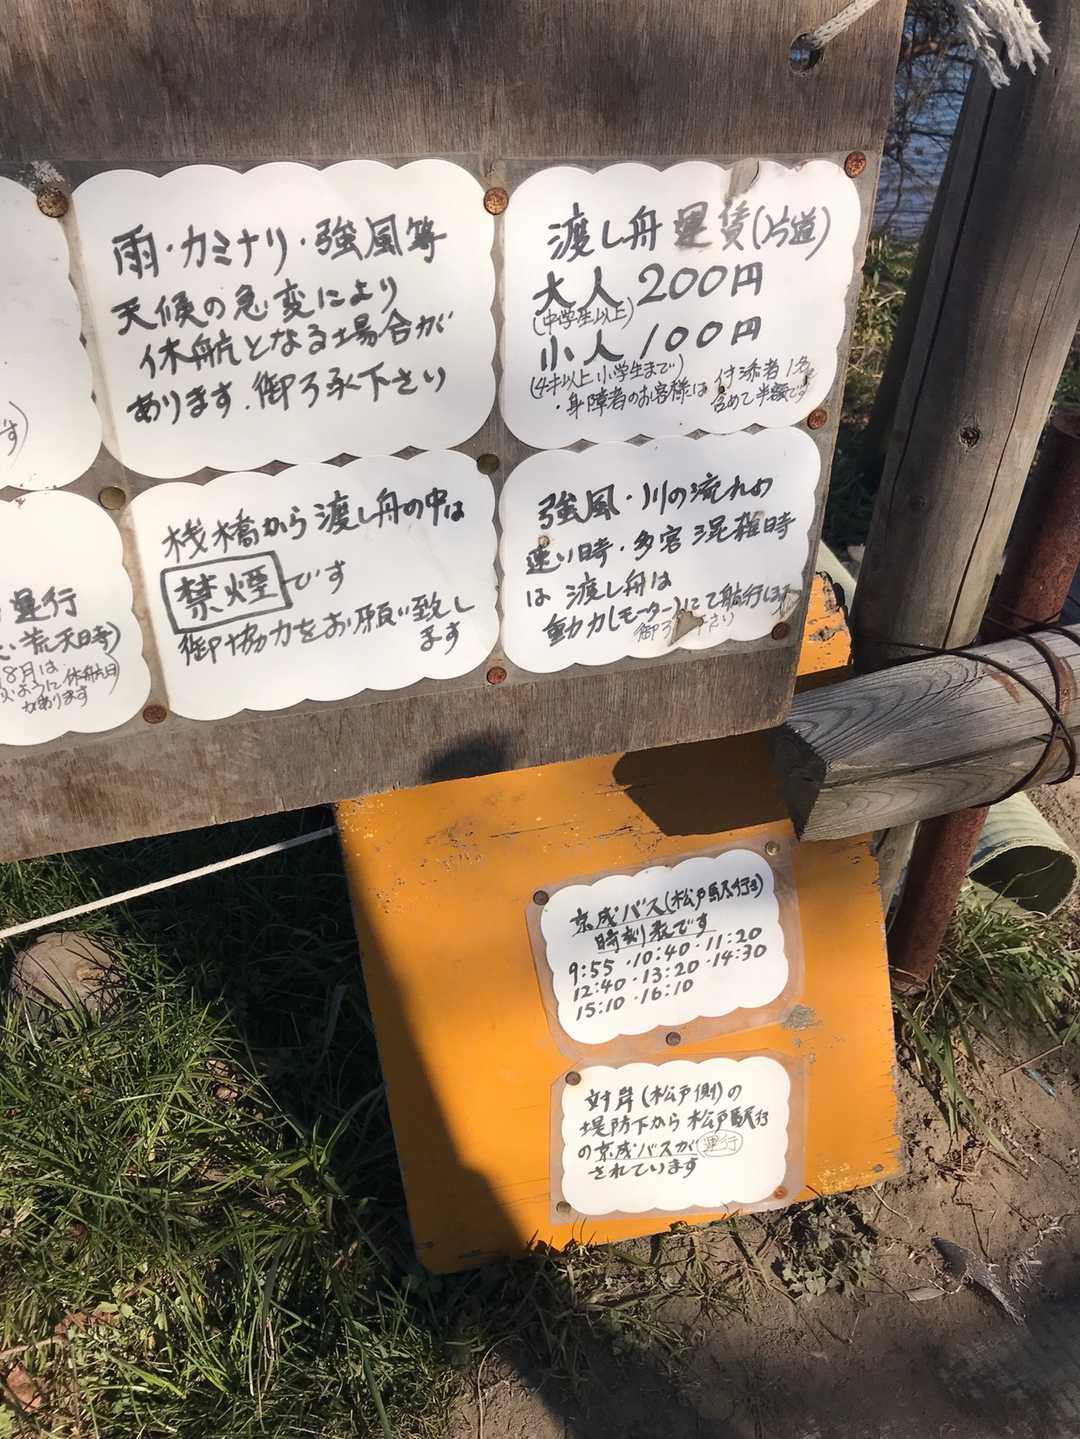 雨・カミナリ・強風等
天候の急変により
休航となる場合が
あります.御了承下さい
渡し舟 運賃(片道)
大人 200円
(中学生以上)
小人 100円
(4才以上小学生まで)
・身障者のお客様は 付添者1名
含めて半額です
す)
運行
荒天時)
8月は
ように休航日
があります
桟橋から渡し舟の中は
禁煙です
御協力をお願い致し
ます
強風・川の流れの
速い時・多客混雑時
は 渡し舟は
動力(モーター)にて航行します
御了 下さい
京成バス(松戸駅行き)
時刻表です
9:55・10:40・11:20
12:40・13:20・14:30
15:10・16:10
対岸(松戸側)の
堤防下から松戸駅行
の京成バスが運行
されています